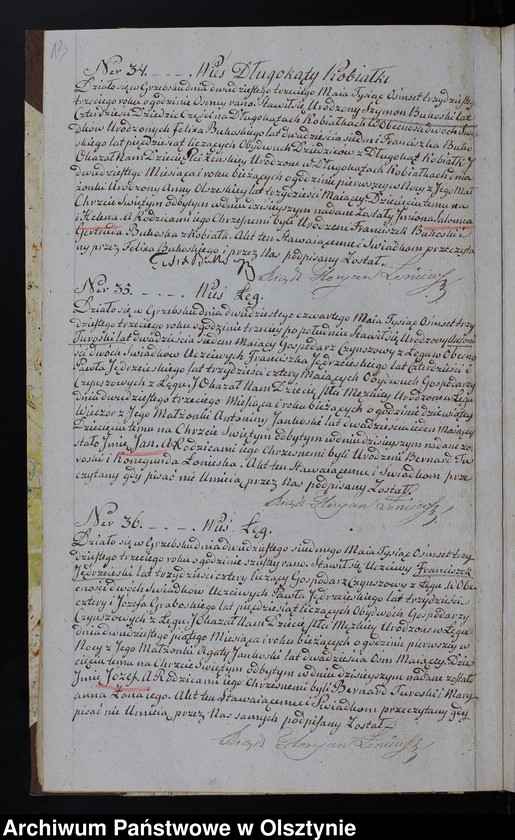 Ner 34. - - - - Wieś Długokąty Kobiałki
Działo się w Grzebsku dnia dwudziestego trzeciego Maia Tysiąc Osmset trzydziestego
trzeciego roku o godzinie Osmey rano. Stawił się Urodzony Szymon Bukoski lat
Czterdzieści Dziedzic Części na Długokątach Kobiałkach w Obecności dwóch Świad
dków Urodzonych Felixa Bukoskiego lat dwadzieścia siedm i Franciszka Buko
skiego lat pięćdziesiąt liczących Obydwóch Dziedziców z Długokąt Kobiałk. I
Okazał Nam Dziecię Płci żenskiey Urodzone w Długokątach Kobiałkach dnia
dwudziestego Miesiąca i roku bieżących o godzinie pierwszey w Nocy z Jego Mał
żonki Urodzoney Anny lat trzydzieści Maiącey Dziecięciu temu na
Chrzcie Świętym odbytym w dniu dzisieyszym nadane zostały Imiona Salomea
i Helena. a Rodzicami iego Chrzesnemi byli Urodzeni Franciszek Bukoski i
Gertruda Bukoska z Kobiałk. Akt ten Stawaiącemu i Świadkom przeczyta
ny przez Felixa Bukoskiego i przez Nas podpisany Został.
Ner 35. - - - - Wieś Łęg.
Działo się w Grzebsku dnia dwudziestego czwartego Maia Tysiąc Osmset trzy
dziestego trzeciego roku o godzinie trzeciey po południu Stawił się Urodzony
Turoski lat dwadzieścia siedm Maiący Gospodarz Czynszowy z Łęgu w Obecno
ści dwóch Świadków Uczciwych Franciszka Jędrzeieskiego lat Czterdzieści i
Pawła Jędrzeieskiego lat trzydzieści cztery Maiących Obydwóch Gospodarzy
Czynszowych z Łęgu. I Okazał Nam Dziecię Płci Męzkiey Urodzone w Łęgu
dnia dwudziestego trzeciego Miesiąca i roku bieżących o godzinie dziewiątey
Wieczor z Jego Małżonki Antoniny Jankoski lat dwadzieścia ieden Maiącey
Dziecięciu temu na Chrzcie Świętym odbytym w dniu dzisieyszym nadane zo
stało Jmie Jan. A Rodzicami iego Chrzesnemi byli Urodzeni Bernard Tu
roski i Konegunda Łonieska. Akt ten Stawaiącemu i Świadkom prze
czytany gdy pisać nie Umieią przez Nas podpisany Został.
Ner 36. - - - - Wieś Łęg.
Działo się w Grzebsku dnia dwudziestego siudmego Maia Tysiąc Osmset trzy
dziestego trzeciego roku o godzinie szóstey rano. Stawił się Uczciwy Franciszek
Jędrzeieski lat trzydzieści cztery liczący Gospodarz Czynszowy z Łęgu. W Obe
cności dwóch Świadków Uczciwych Pawła Jędrzeieskiego lat trzydzieści
cztery i Jozefa Graboskiego lat pięćdziesiąt liczących Obydwóch Gospodarzy
Czynszowych z Łęgu. I Okazał Nam Dziecię Płci Męzkiey Urodzone w Łęgu
dnia dwudziestego piątego Miesiąca i roku bieżących o godzinie pierwszey w
Nocy z Jego Małżonki Agaty Jankoski lat dwadzieścia Osm Maiącey. Dzie
cięciu temu na Chrzcie Świętym odbytym w dniu dzisieyszym nadane zostało
Jmie Jozef. A Rodzicami iego Chrzesnemi byli Bernard Turoski i Mary
anna Akt ten Stawaiącemu i Świadkom przeczytany gdy
pisać nie Umieią przez Nas samych podpisany Został.
Archiwum Państwowe w Olsztynie